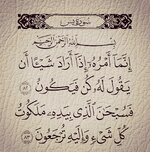 سورة يس
بسم الله الرحمن الرحيم
إِنَّمَآ أَمْرُهُۥٓ إِذَآ أَرَادَ شَيْـًٔا أَن
يَقُولَ لَهُۥ كُن فَيَكُونُ ٨٢
فَسُبْحَٰنَ ٱلَّذِى بِيَدِهِۦ مَلَكُوتُ
كُلِّ شَىْءٍ وَإِلَيْهِ تُرْجَعُونَ ٨٣